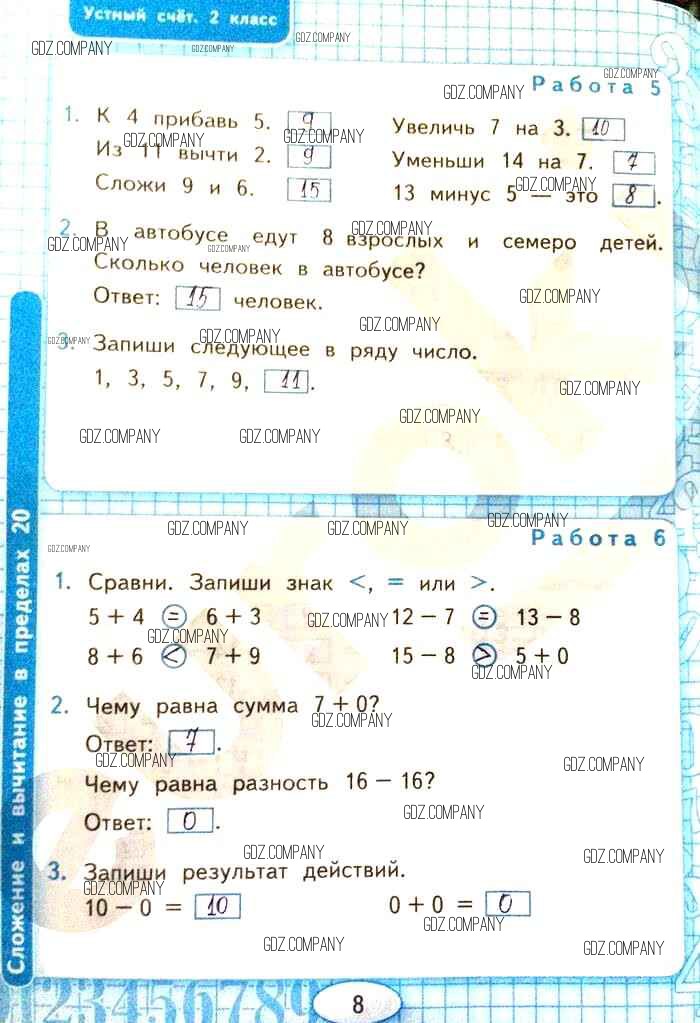 Устный счёт. 2 класс
Работа 5
1. К 4 прибавь 5. 9
Из 11 вычти 2. 9
Сложи 9 и 6. 15
Увеличь 7 на 3. 10
Уменьши 14 на 7. 7
13 минус 5 — это 8.
2. В автобусе едут 8 взрослых и семеро детей.
Сколько человек в автобусе?
Ответ: 15 человек.
3. Запиши следующее в ряду число.
1, 3, 5, 7, 9, 11.
Работа 6
1. Сравни. Запиши знак <, = или >.
5 + 4 = 6 + 3
12 − 7 = 13 − 8
8 + 6 < 7 + 9
15 − 8 > 5 + 0
2. Чему равна сумма 7 + 0?
Ответ: 7.
Чему равна разность 16 − 16?
Ответ: 0.
3. Запиши результат действий.
10 − 0 = 10
0 + 0 = 0
Сложение и вычитание в пределах 20
8
123456789
GDZ.COMPANY